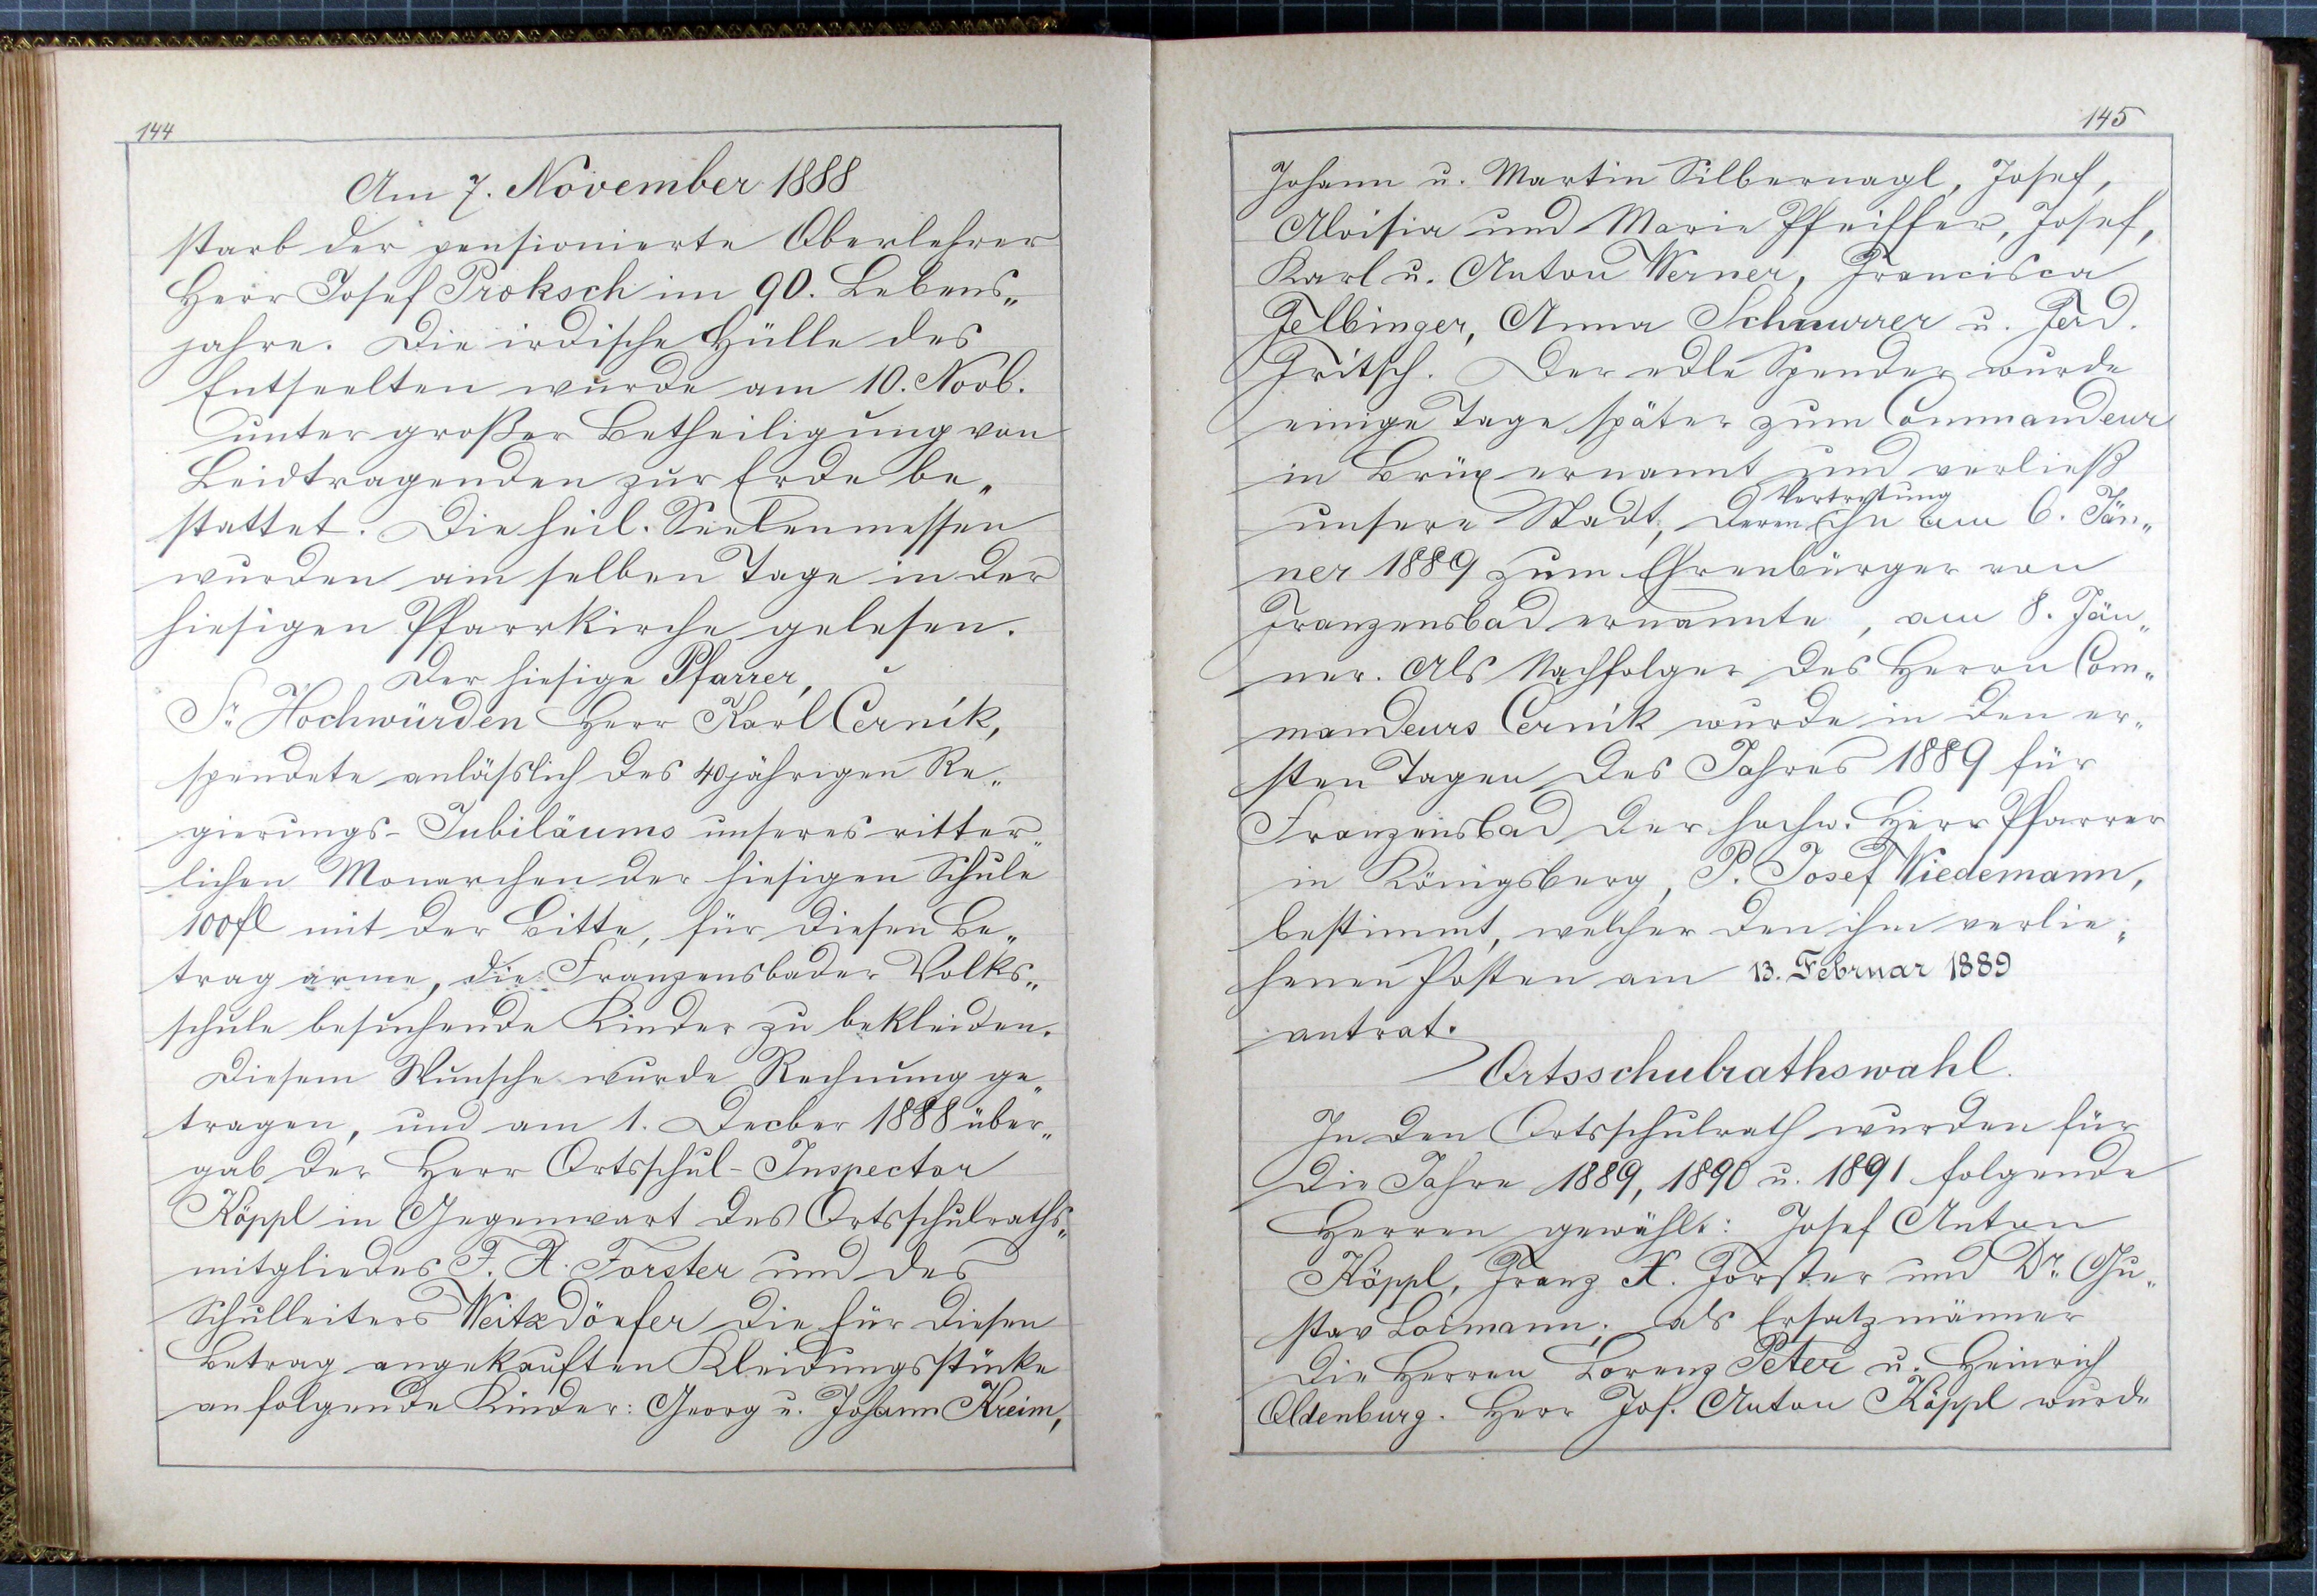 144
Am 7. November 1888
starb der pensionierte Oberlehrer
Herr Josef Proksch im 90. Lebens„
jahre. Die irdische Hülle des
Entseelten wurde am 10. Novb.
unter großer Betheiligung von
Leidtragenden zur Erde be„
stattet. Die heil. Seelenmessen
wurden am selben Tage in der
hiesigen Pfarrkirche gelesen.
Der hiesige Pfarrer,
Sr. Hochwürden Herr Karl Černík,
spendete anläßlich des 40jährigen Re„
gierungs-Jubiläums unseres ritter„
lichen Monarchen der hiesigen Schule
100 fl mit der Bitte, für diesen Be„
trag arme, die Franzensbader Volks„
schule besuchende Kinder zu bekleiden.
Diesem Wunsche wurde Rechnung ge„
tragen, und am 1. Decber 1888 über„
gab der Herr Ortsschul-Inspector
Köppl in Gegenwart des Ortsschulraths„
mitgliedes F. X. Forster und des
Schulleiters Weitzdörfer die für diesen
Betrag angekauften Kleidungsstücke
an folgende Kinder: Georg u. Johann Kreim,
145
Johann u. Martin Silbernagl, Josef,
Aloisia und Marie Pfeiffer, Josef,
Karl u. Anton Werner, Francisca
Felbinger, Anna Schnurrer u. Ferd.
Fritsch. Der edle Spender wurde
einige Tage später zum Commandeur
in Brüx ernannt und verließ
Vertretung
unsere Stadt, deren ihn am 6. Jän„
ner 1889 zum Ehrenbürger von
Franzensbad ernannte, am 8. Jän„
ner. Als Nachfolger des Herrn Com„
mandeurs Černík wurde in den er„
sten Tagen des Jahres 1889 für
Franzensbad der hochw. Herr Pfarrer
in Königsberg, P. Josef Wiedemann,
bestimmt, welcher den ihm verlie„
henen Posten am 13. Februar 1889
antrat.
Ortsschulrathswahl.
In den Ortsschulrath wurden für
die Jahre 1889, 1890 u. 1891 folgende
Herren gewählt: Josef Anton
Köppl, Franz X. Forster und Dr. Gu„
stav Loimann; als Ersatzmänner
die Herren Lorenz Peter u. Heinrich
Oldenburg. Herr Jos. Anton Köppl wurde